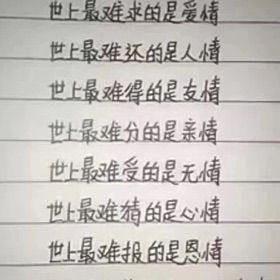 世上最难求的是爱情
世上最难还的是人情
世上最难得的是友情
世上最难分的是亲情
世上最难受的是无情
世上最难猜的是心情
世上最难报的是恩情